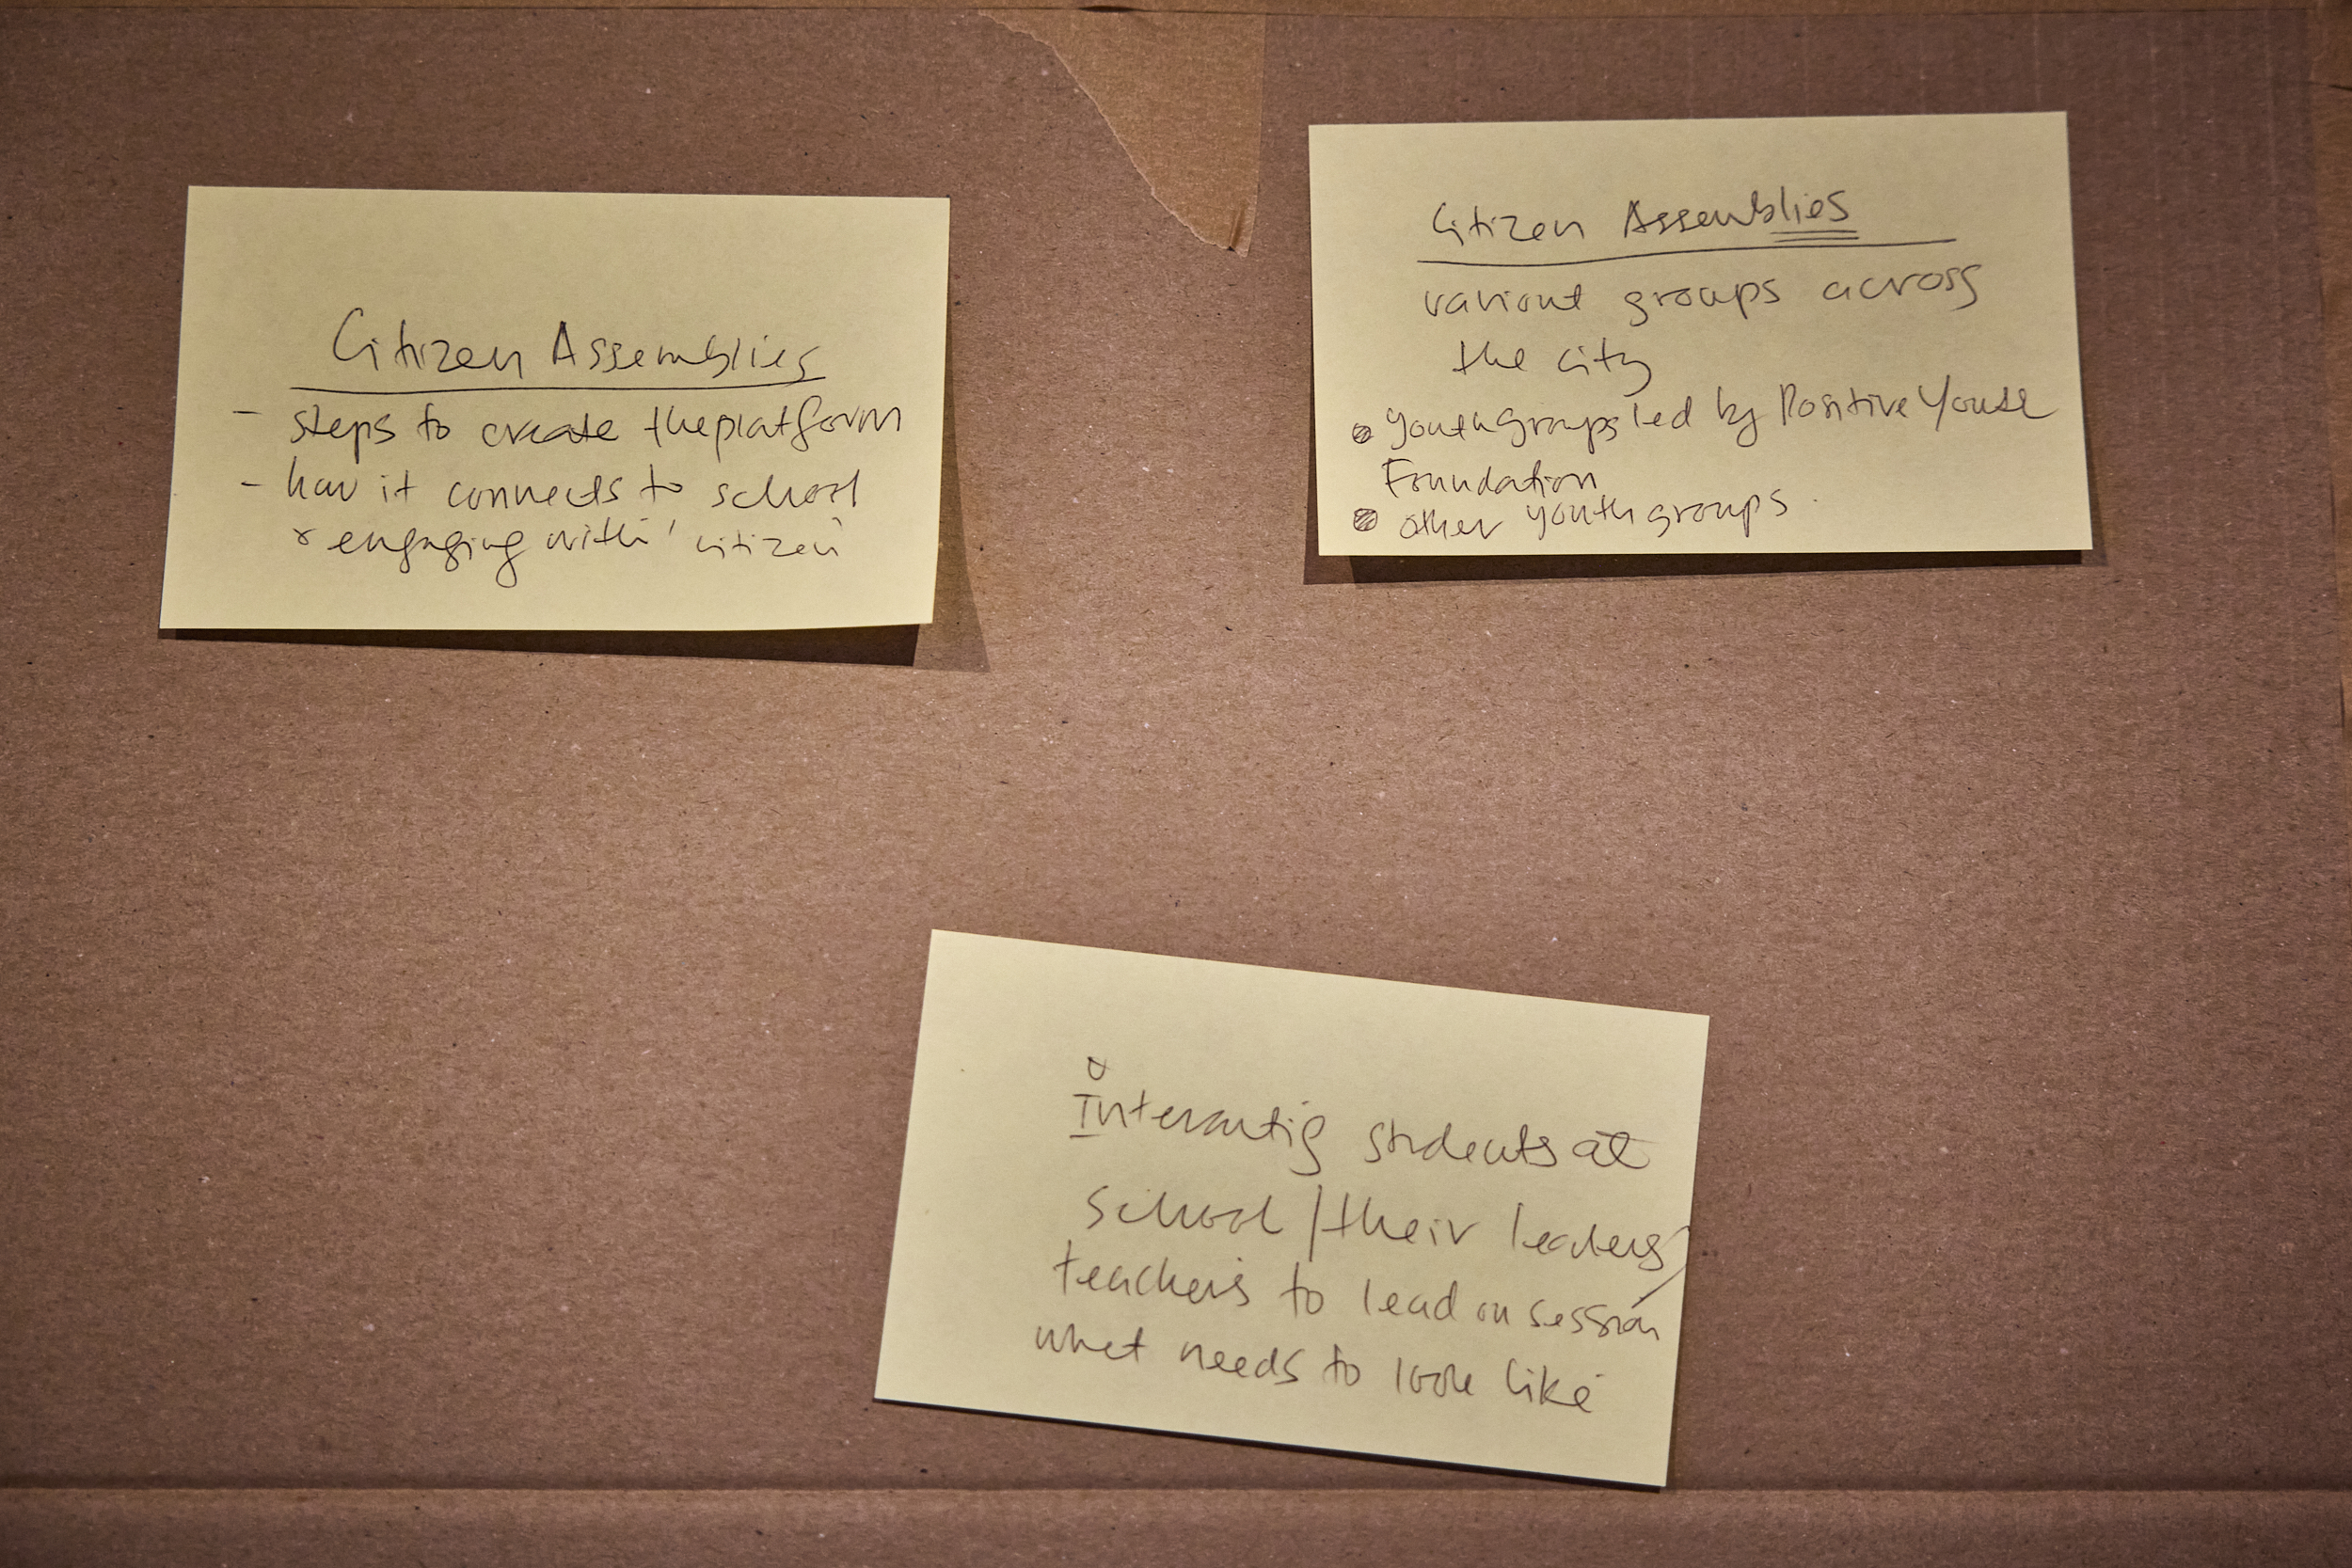 Citizen Assemblies
- steps to create the platform
- how it connects to school
& engaging with 'citizen'
Citizen Assemblies
variout groups across
the city
• Youth Groups led by Positive Youth
Foundation
• other youth groups.
students at
school / their leaders /
teachers to lead on session
what needs to look like